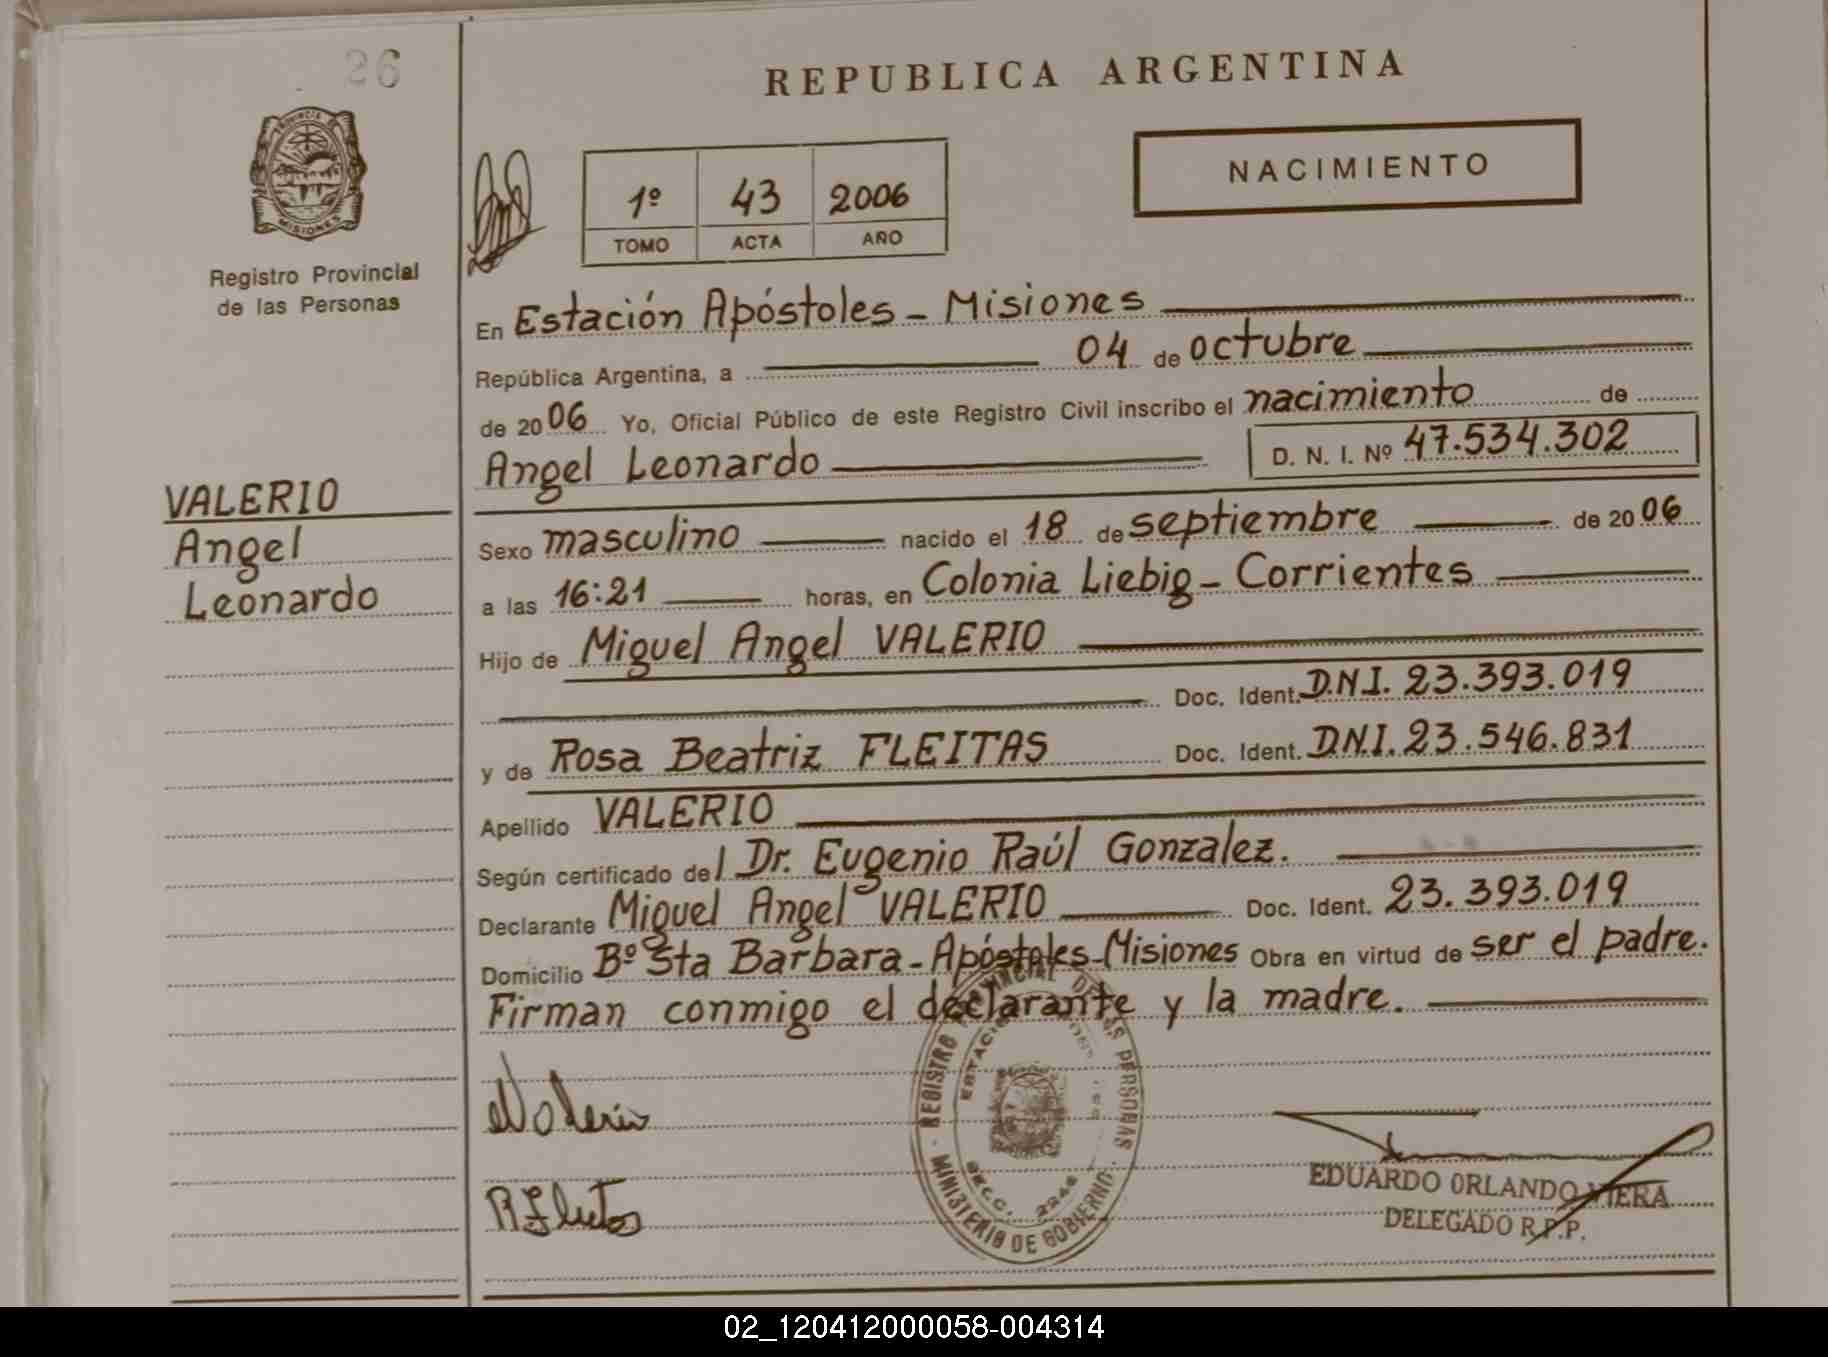 26
REPUBLICA ARGENTINA
PROVINCIA DE
MISIONES
Registro Provincial
de las Personas
1º 43 2006
TOMO ACTA AÑO
NACIMIENTO
En Estación Apóstoles - Misiones
República Argentina, a 04 de octubre
de 2006 Yo, Oficial Público de este Registro Civil inscribo el nacimiento de
Angel Leonardo D. N. I. Nº 47.534.302
VALERIO
Angel
Leonardo
Sexo masculino nacido el 18 de septiembre de 2006
a las 16:21 horas, en Colonia Liebig - Corrientes
Hijo de Miguel Angel VALERIO
Doc. Ident. D.N.I. 23.393.019
y de Rosa Beatriz FLEITAS Doc. Ident. D.N.I. 23.546.831
Apellido VALERIO
Según certificado del Dr. Eugenio Raúl Gonzalez.
Declarante Miguel Angel VALERIO Doc. Ident. 23.393.019
Domicilio Bº Sta Barbara - Apóstoles - Misiones Obra en virtud de ser el padre.
Firman conmigo el declarante y la madre.
REGISTRO PROVINCIAL DE LAS PERSONAS
MINISTERIO DE GOBIERNO
Valerio
R Fleitas
EDUARDO ORLANDO VIERA
DELEGADO R.P.P.
02_120412000058-004314